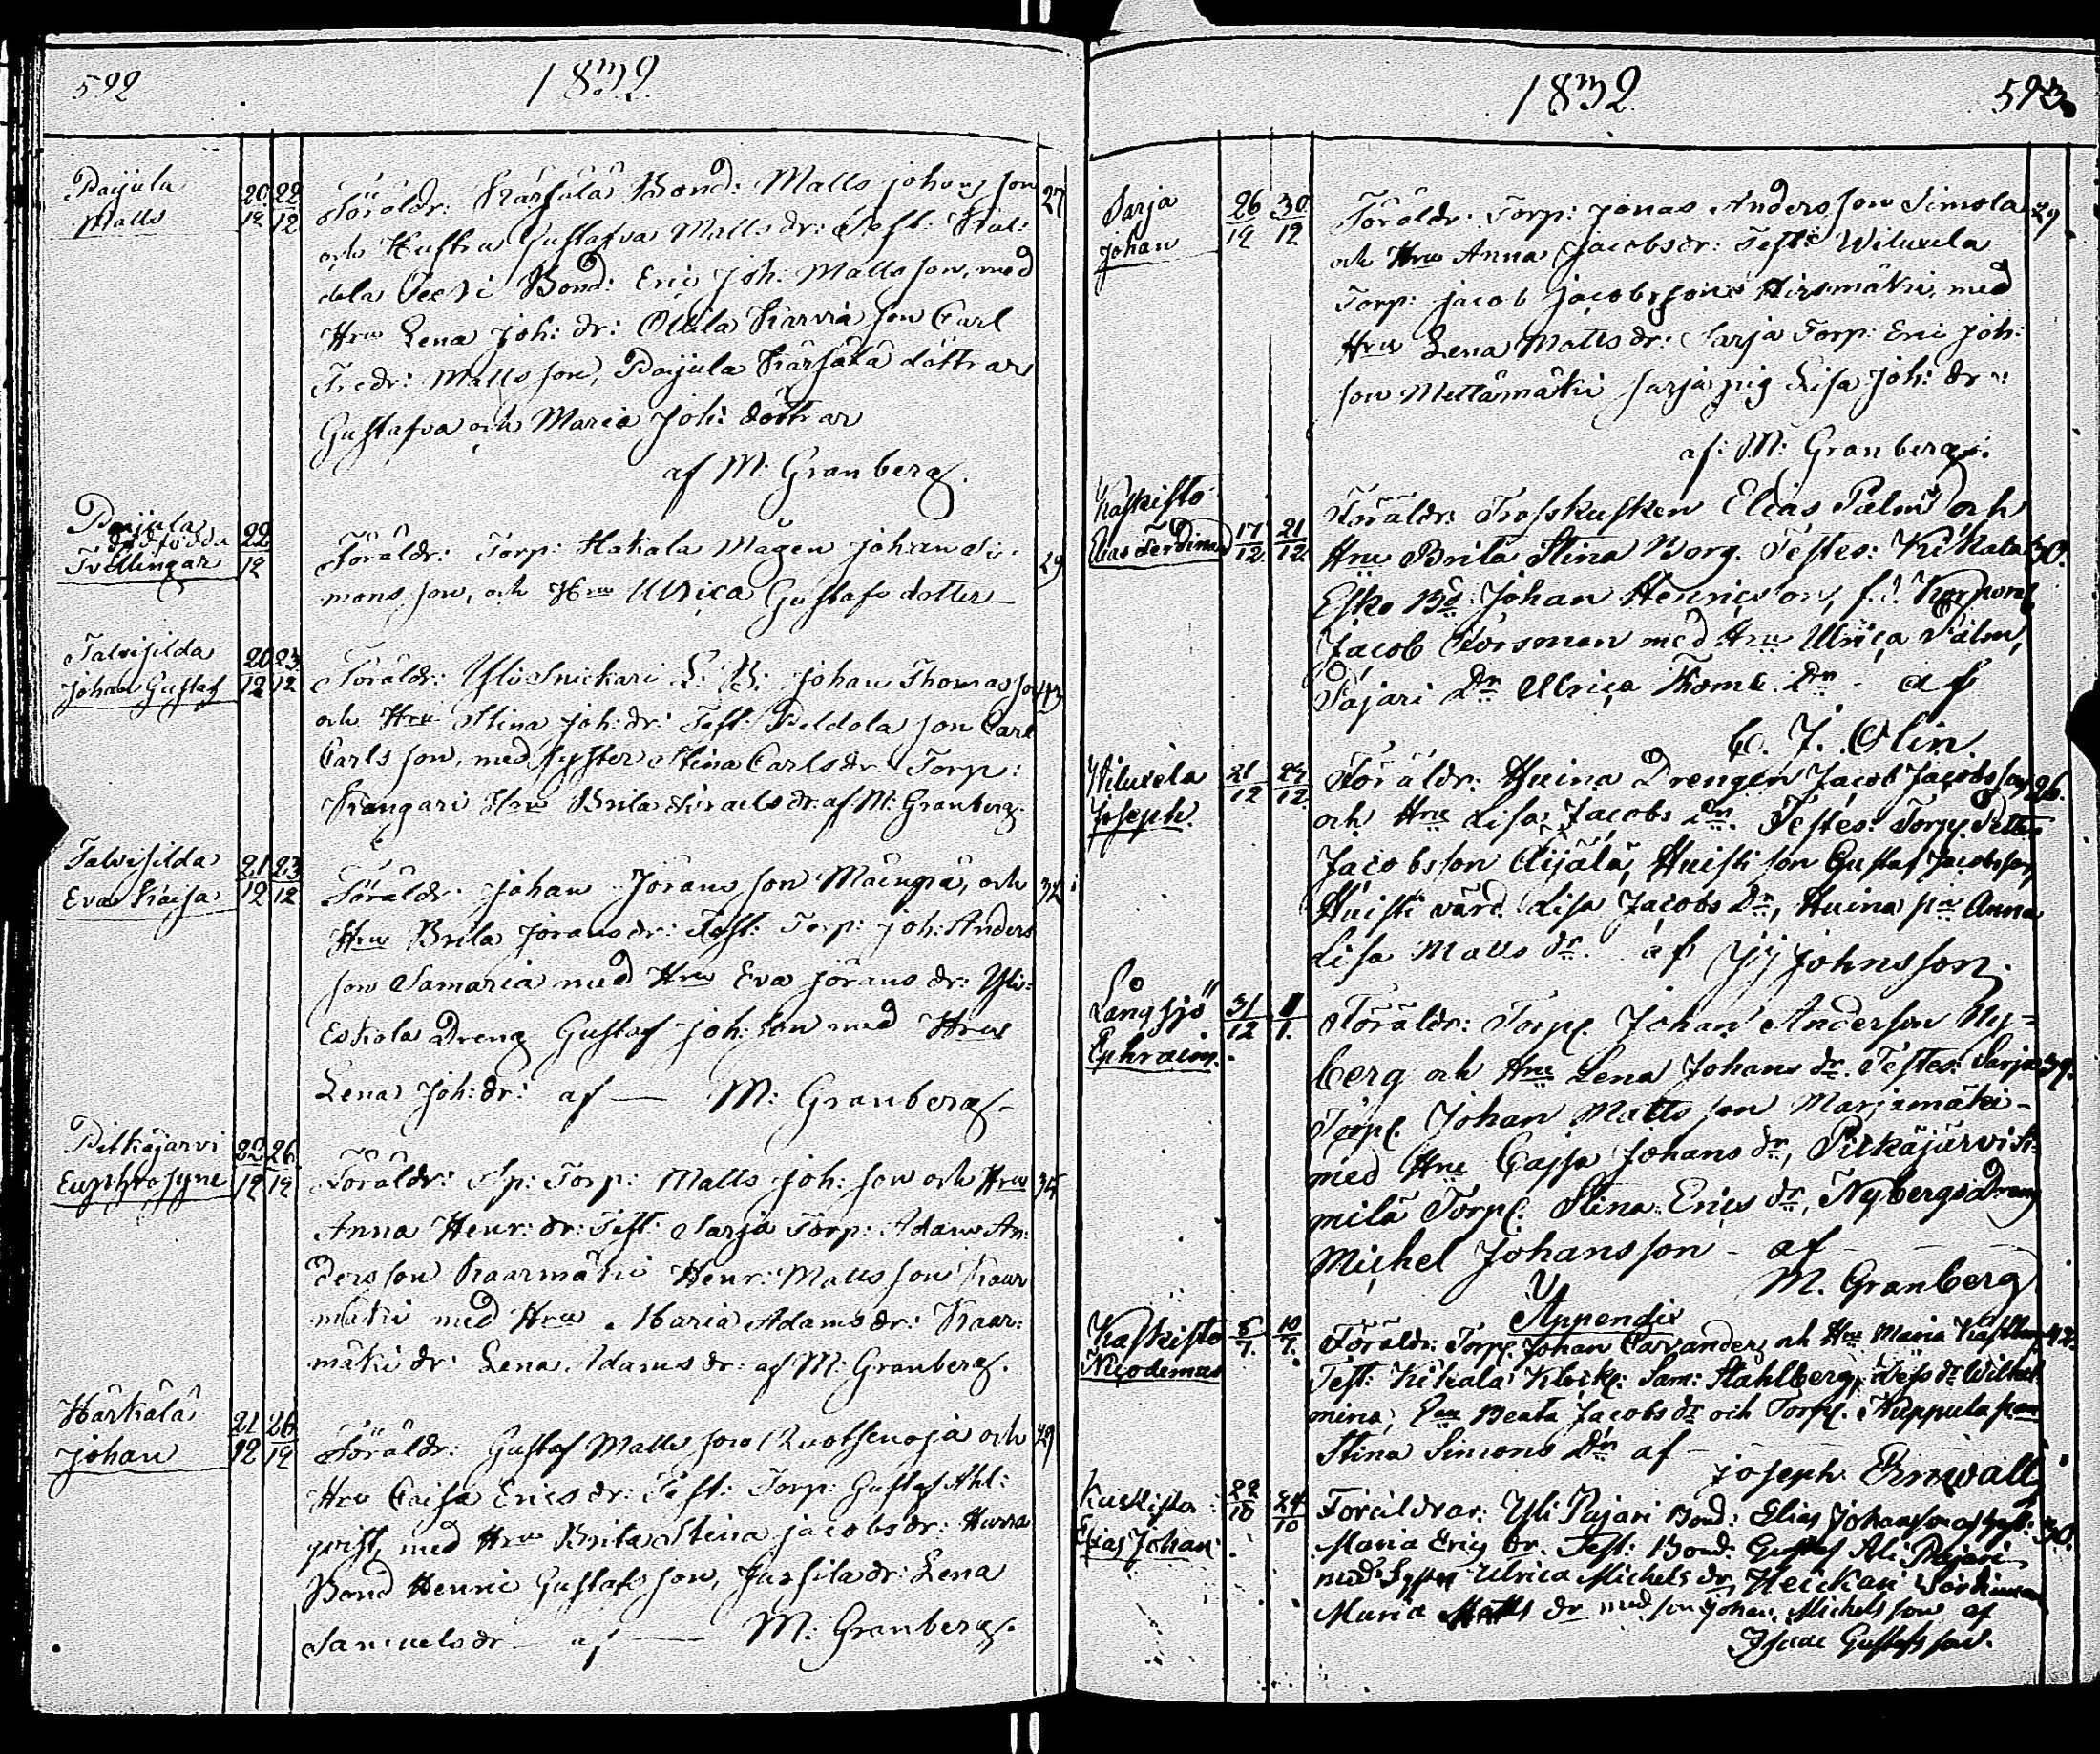 592
1832.
Paijula
Matts
20/12 22/12
Föräldr: Kärsälä Bond: Matts Johans son 27
och Hustru Gustafva Matts dr: Test:
Bond: Eric Joh: Matts son, med
Hru Lena Joh: dr: Ollila Karvia son Carl
Fredr: Matts son, Paijula Kärsälä döttrar
Gustafva och Maria Joh: döttrar
af M: Granberg.
Paijula
dödfödda
Tvillingar
22/12
Föräldr: Torp: Hakala Mågen Johan Si- 29
mons son, och Hru Ulrica Gustafs dotter
Talvisilda
Johan Gustaf
20/12 23/12
Föräldr: Johan Thomas son 43
och Hru Stina Joh: dr: Test: Peldola son Carl
Carls son, med syster Stina Carls dr: Torp:
Kangari Hru Brita Israels dr: af M: Granberg.
Talvisilda
Eva Kaisa
21/12 23/12
Föräldr: Johan Jörans son och 32
Hru Brita Jörans dr: Test: Torp: Joh: Anders
son Samaria med Hru Eva Jörans dr: Yli-
Eskola Dreng Gustaf Joh: son med Hru
Lena Joh: dr: af — M: Granberg.
Pitkäjärvi
Euphrosyne
22/12 26/12
Föräldr: Sp: Torp: Matts Joh: son och Hru 34
Anna Henr: dr: Test: Sarja Torp: Adam An-
ders son Kaarmäki Henr: Matts son Kaar
mäki med Hru Maria Adams dr: Kaar:
mäki dr: Lena Adams dr: af M: Granberg.
Härkälä
Johan
21/12 26/12
Föräldr: Gustaf Matts son Ruotsenoja och 29
Hru Caisa Erics dr: Test: Torp: Gustaf Ahl:
qvist, med Hru Brita Stina Jacobs dr: Hurra
Bond Henric Gustafs son, Jussila dr: Lena
Samuels dr — af — M: Granberg.
1832
593
Sarja
Johan
26/12 30/12
Föräldr: Torp: Jonas Anders son Simola 29
och Hru Anna Jacobs dr: Test: Wiluxela
Torp: Jacob Jacobs son Hirsmäki, med
Hru Lena Matts dr: Sarja Torp: Eric Joh:
son Mettämäki Sarja pig Lisa Joh: dr:
af: M: Granberg.
Kaskisto
Elias Ferdinand
17/12. 21/12.
Föräldr: Trosskusken Elias Palm och
Hru Brita Stina Borg. Testes: Kikala 30.
Esko Bd: Johan Henricsson, f.d. Korporal
Jacob Forsman med Hru Ulrica Palm,
Pajari Dn Ulrica Thom: Dn - af
C. J. Olin.
Wiluxela
Joseph.
21/12 24/12.
Föräldr: Huina Drengen Jacob Jacobsson 26.
och Hru Lisa Jacobs Dr. Testes: Torp. Petter
Jacobsson Äijälä, Huisti son Gustaf Jacobsson,
Huisti värd: Lisa Jacobs Dr, Huina pig Anna
Lisa Matts dr. af JJ Johnsson.
Långsjö
Ephraim.
31/12 1/1.
Föräldr: Torp. Johan Anderson Ny-
berg och Hru Lena Johans dr. Testes: Sarja 39.
Torp. Johan Matts son Marjamäki-
med Hru Cajsa Johans dr, Pitkäjärvi
milä Torp. Stina Erics dr, Nybergs Dreng
Michel Johansson - af
M. Granberg
Appendix
Kaskisto
Nicodemus
6/7. 10/7.
Föräldr: Torp. Johan Cavander, och Hru Maria 42.
Test: Kikala Klock: Sam: Ståhlberg, dess dr Wilhel
mina, Beata Jacobs dr och Torp. Kuppula
Stina Simons Dn af
Joseph Bnwall
Kaskisto:
Elias Johan.
22/10 24/10
Föräldrar: Yli Pajari Bond: Elias Johansson och Hust: 30.
Maria Erics dr. Test: Bond: Gustaf Ali Pajari
med Syster Ulrica Michels dr, Heickari
Maria Matts dr med son Johan Michels son af
Isaac Gustafsson.